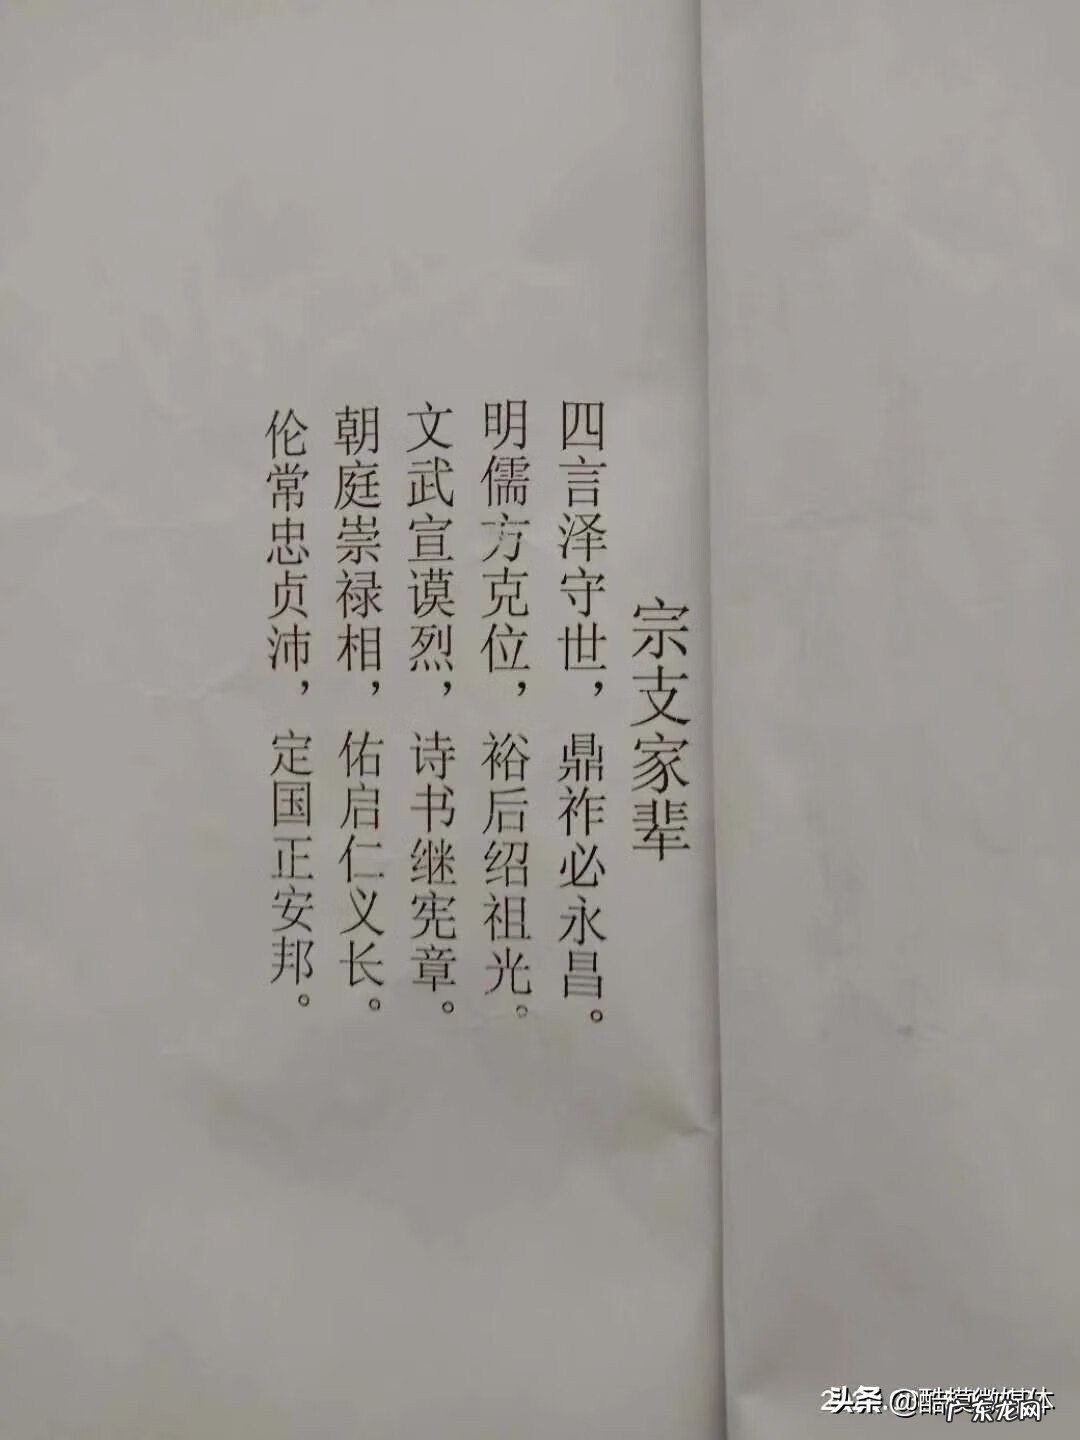 宗支家辈
四言泽守世，鼎祚必永昌。
明儒方克位，裕后绍祖光。
文武宣谟烈，诗书继宪章。
朝庭崇禄相，佑启仁义长。
伦常忠贞沛，定国正安邦。
头条 @酷模微媒体
广东龙网